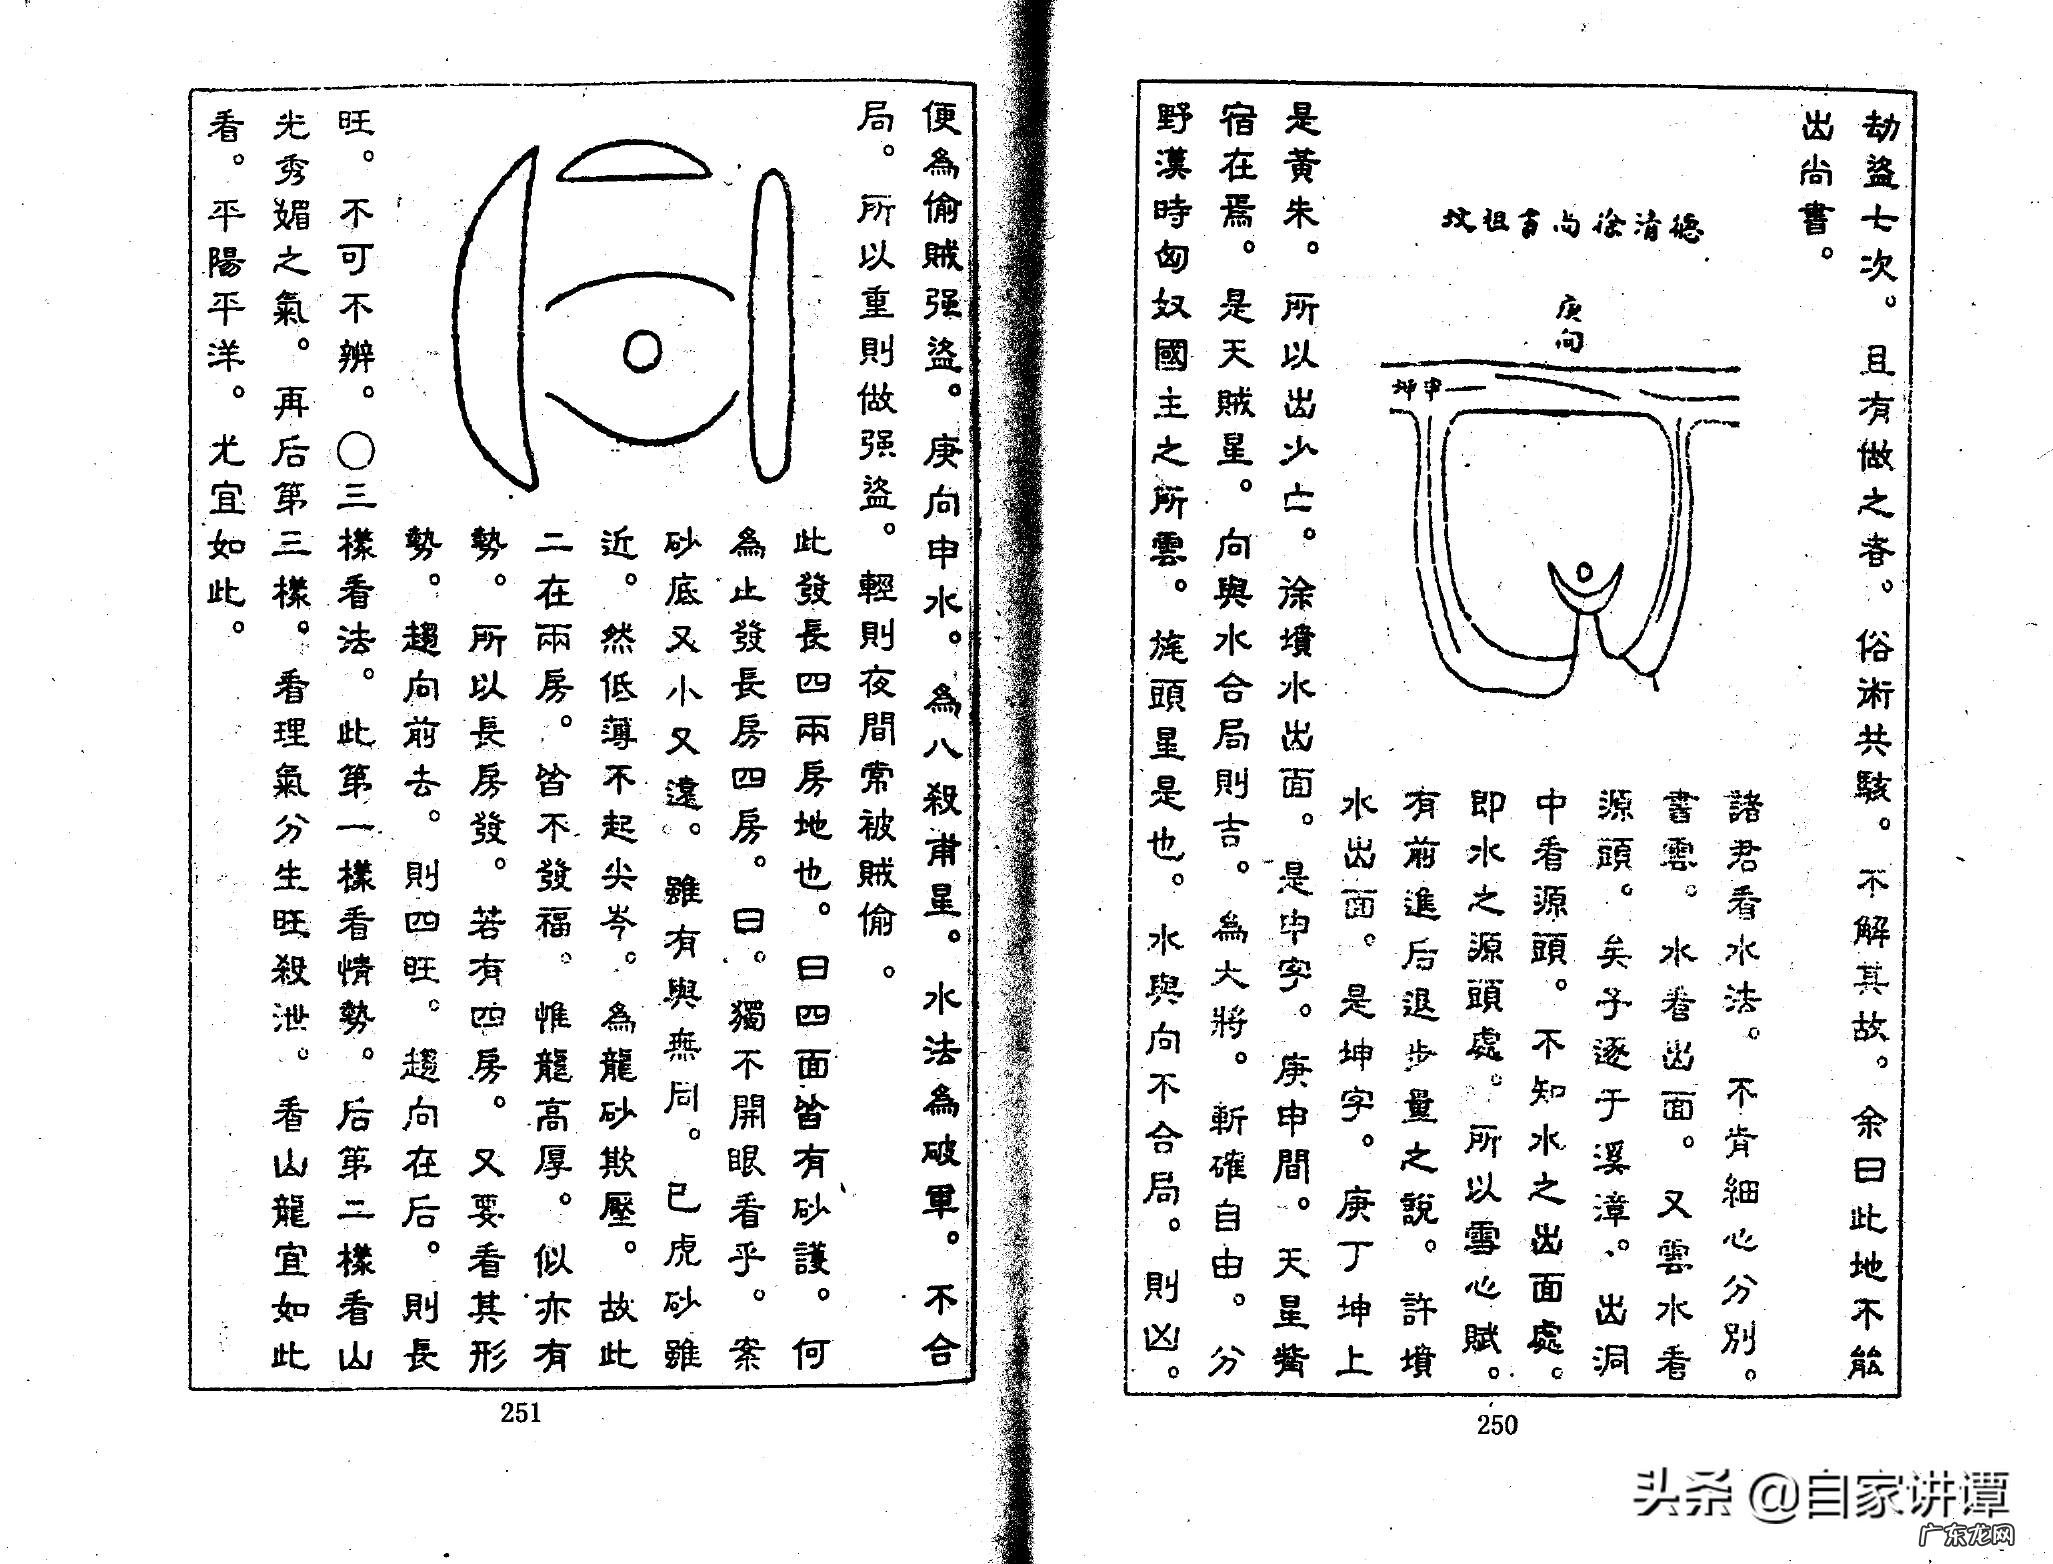 劫盜七次。且有做之者。俗術共駭。不解其故。余曰此地不能
出尚書。
德清徐尚書祖坟
庚向
坤申
諸君看水法。不肯細心分別。
書雲。水看出面。又雲水看
源頭。矣子逐于溪漳。出洞
中看源頭。不知水之出面處。
即水之源頭處。所以雪心賦。
有前進后退步量之說。許墳
水出面。是坤字。庚丁坤上
是黃朱。所以出少亡。徐墳水出面。是申字。庚申間。天星觜
宿在焉。是天賊星。向與水合局則吉。為大將。斬確自由。分
野漢時匈奴國主之所雲。旄頭星是也。水與向不合局。則凶。
250
便為偷賊强盜。庚向申水。為八殺甫星。水法為破軍。不合
局。所以重則做强盜。輕則夜間常被賊偷。
此發長四兩房地也。曰四面皆有砂護。何
為止發長房四房。曰。獨不開眼看乎。案
砂底又小又遠。雖有與無同。已虎砂雖
近。然低薄不起尖岑。為龍砂欺壓。故此
二在兩房。皆不發福。惟龍高厚。似亦有
勢。所以長房發。若有四房。又要看其形
勢。趨向前去。則四旺。趨向在后。則長
旺。不可不辨。〇三樣看法。此第一樣看情勢。后第二樣看山
光秀媚之氣。再后第三樣。看理氣分生旺殺泄。看山龍宜如此
看。平陽平洋。尤宜如此。
251
头条 @自家讲谭
广东龙网